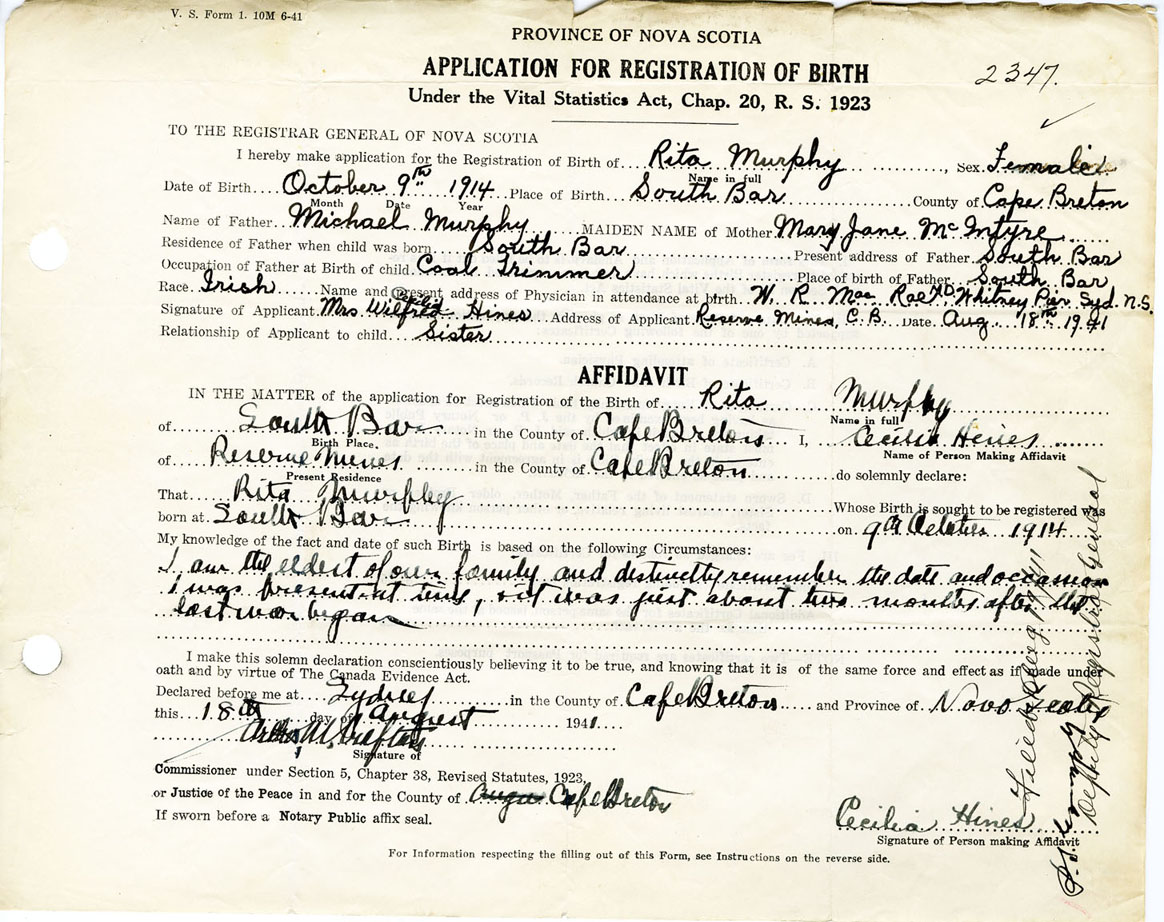 V. S. Form 1. 10M 6-41
PROVINCE OF NOVA SCOTIA
APPLICATION FOR REGISTRATION OF BIRTH
2347.
Under the Vital Statistics Act, Chap. 20, R. S. 1923
TO THE REGISTRAR GENERAL OF NOVA SCOTIA
I hereby make application for the Registration of Birth of Rita Murphy, Sex Female
Name in full
Date of Birth October 9th 1914 Place of Birth South Bar County of Cape Breton
Month Date Year
Name of Father Michael Murphy MAIDEN NAME of Mother Mary Jane McIntyre
Residence of Father when child was born South Bar Present address of Father South Bar
Occupation of Father at Birth of child Coal Trimmer Place of birth of Father South Bar
Race Irish Name and Present address of Physician in attendance at birth W. R. Mac Rae M.D. Whitney Pier Syd. N.S.
Cecilia
Signature of Applicant Mrs. Wilfred Hines Address of Applicant Reserve Mines, C.B. Date Aug. 18th 1941
Relationship of Applicant to child Sister
AFFIDAVIT
IN THE MATTER of the application for Registration of the Birth of Rita Murphy
Name in full
of South Bar in the County of Cape Breton I, Cecilia Hines
Birth Place. Name of Person Making Affidavit
of Reserve Mines in the County of Cape Breton do solemnly declare:
Present Residence
That Rita Murphy Whose Birth is sought to be registered was
born at South Bar on 9th October 1914
My knowledge of the fact and date of such Birth is based on the following Circumstances:
I am the eldest of our family and distinctly remember the date and occassion
I was present at time, it was just about two months after the
last war began
I make this solemn declaration conscientiously believing it to be true, and knowing that it is of the same force and effect as if made under
oath and by virtue of The Canada Evidence Act.
Declared before me at Sydney in the County of Cape Breton and Province of Nova Scotia
this 18th day of August 1941
Signature of
Commissioner under Section 5, Chapter 38, Revised Statutes, 1923,
or Justice of the Peace in and for the County of Cape Breton
If sworn before a Notary Public affix seal.
Cecilia Hines
Signature of Person making Affidavit
For Information respecting the filling out of this Form, see Instructions on the reverse side.
Filed Aug 19 1941
Deputy Registrar General